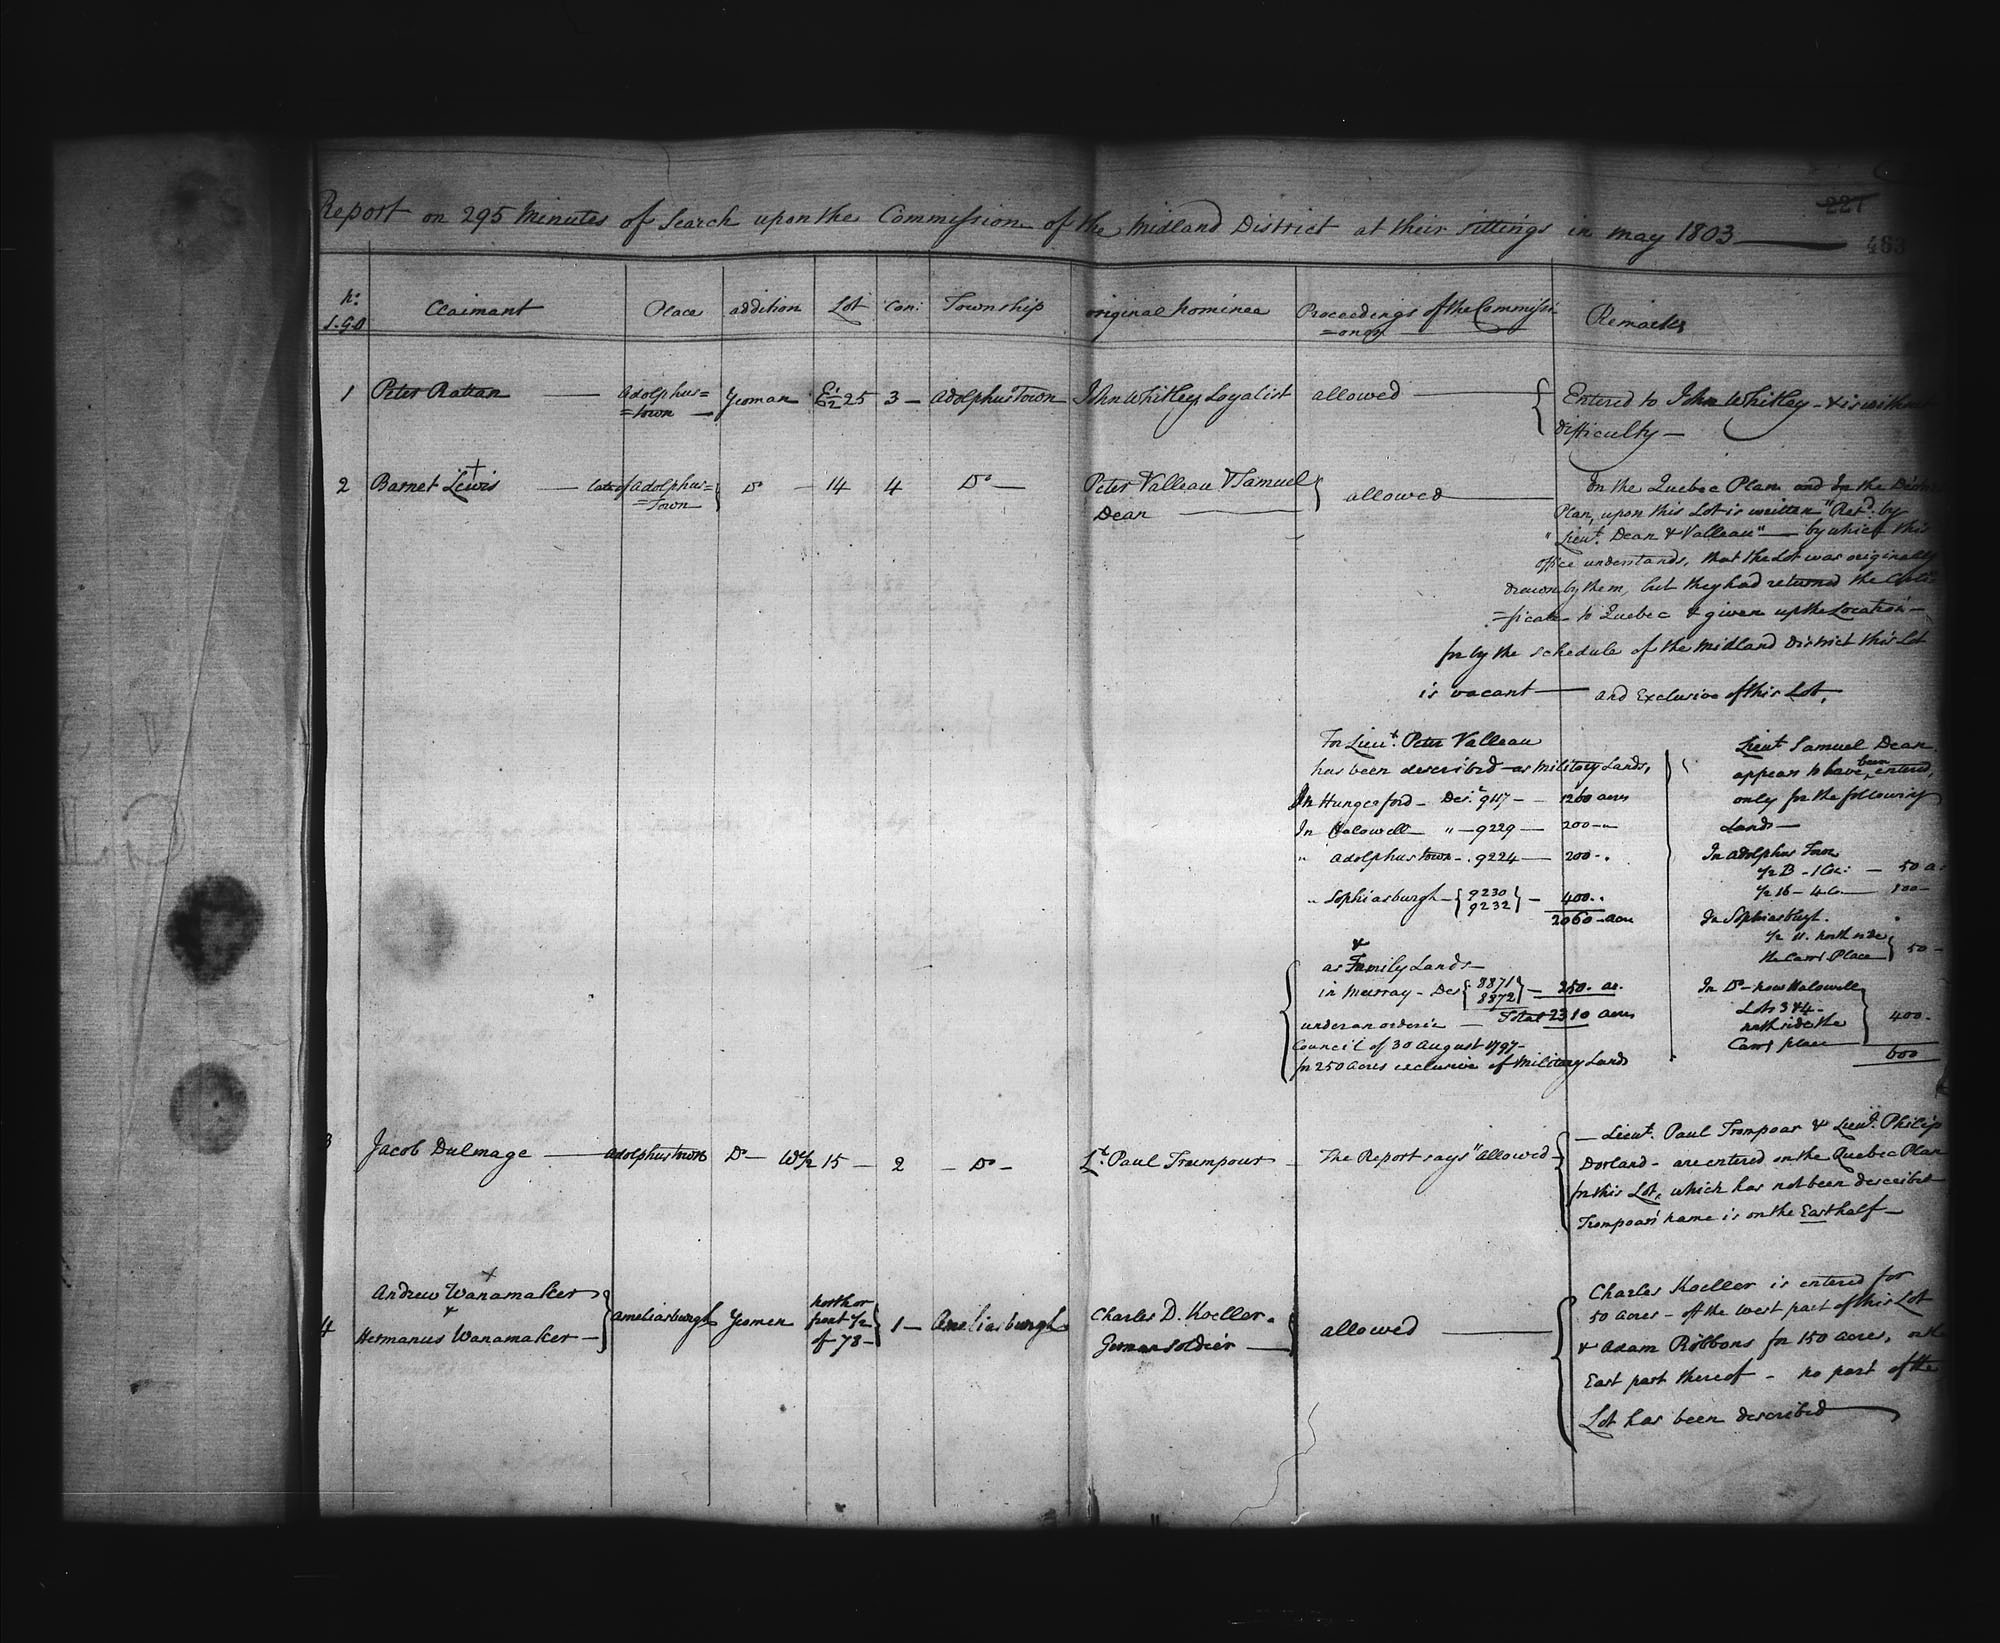 227
Report on 295 Minutes of Search upon the Commission of the Midland District at their sittings in May 1803
463
No. S.G.O Claimant Place addition Lot Con: Township original nominee Proceedings of the Commissi=oners Remarks
1 Peter Rattan Adolphus=
=town Yeoman E 1/2 25 3 Adolphus Town John Whitley Loyalist allowed Entered to John Whitley - & is without
difficulty
2 Barnet Lewis late of Adolphus=
=Town Do 14 4 Do Peter Valleau & Samuel
Dean allowed In the Quebec Plan and In the
Plan, upon this Lot is written "Retd. by
"Lieut. Dean & Valleau" by which this
office understands, that the Lot was originally
drawn by them, but they had returned the Certi
=ficate to Quebec & given up the Location
for by the schedule of the Midland District this Lot
is vacant and Exclusive of this Lot,
For Lieut. Peter Valleau
has been described as Military Lands,
In Hungerford - Des. 9117 - 1260 acres
In Halowell " 9229 200
" Adolphustown 9224 200
" Sophiasburgh { 9230
9232 } 400
2060 acres
&
as Family Lands
in Murray - Des { 8871
8872 } 250. ac.
Total 2310 acres
under an order in
Council of 30 August 1797
for 250 acres exclusive of Military Lands
Lieut Samuel Dean
appears to have been entered,
only for the following
Lands
In Adolphus Town
1/2 B - 1 Con: 50 a
1/2 16 - 4 C 100
In Sophiasburgh.
1/2 11. north side
the Carr Place } 50
In Do - now Halowell
Lots 3 & 4
north side the
Carr place } 400
600
3 Jacob Dulmage Adolphustown Do W 1/2 15 2 Do Lt. Paul Trumpour The Report says "allowed Lieut. Paul Trompour & Lieut. Philip
Dorland - are entered on the Quebec Plan
for this Lot, which has not been described
Trompours name is on the East half
4 Andrew Wanamaker
&
Hermanus Wanamaker Ameliasburgh Yeomen north or
front 1/2
of 73 1 Ameliasburgh Charles D. Koeller
German soldier allowed Charles Koeller is entered for
50 acres - off the west part of this Lot
& Adam Ribbons for 150 acres, on the
East part thereof - no part of the
Lot has been described